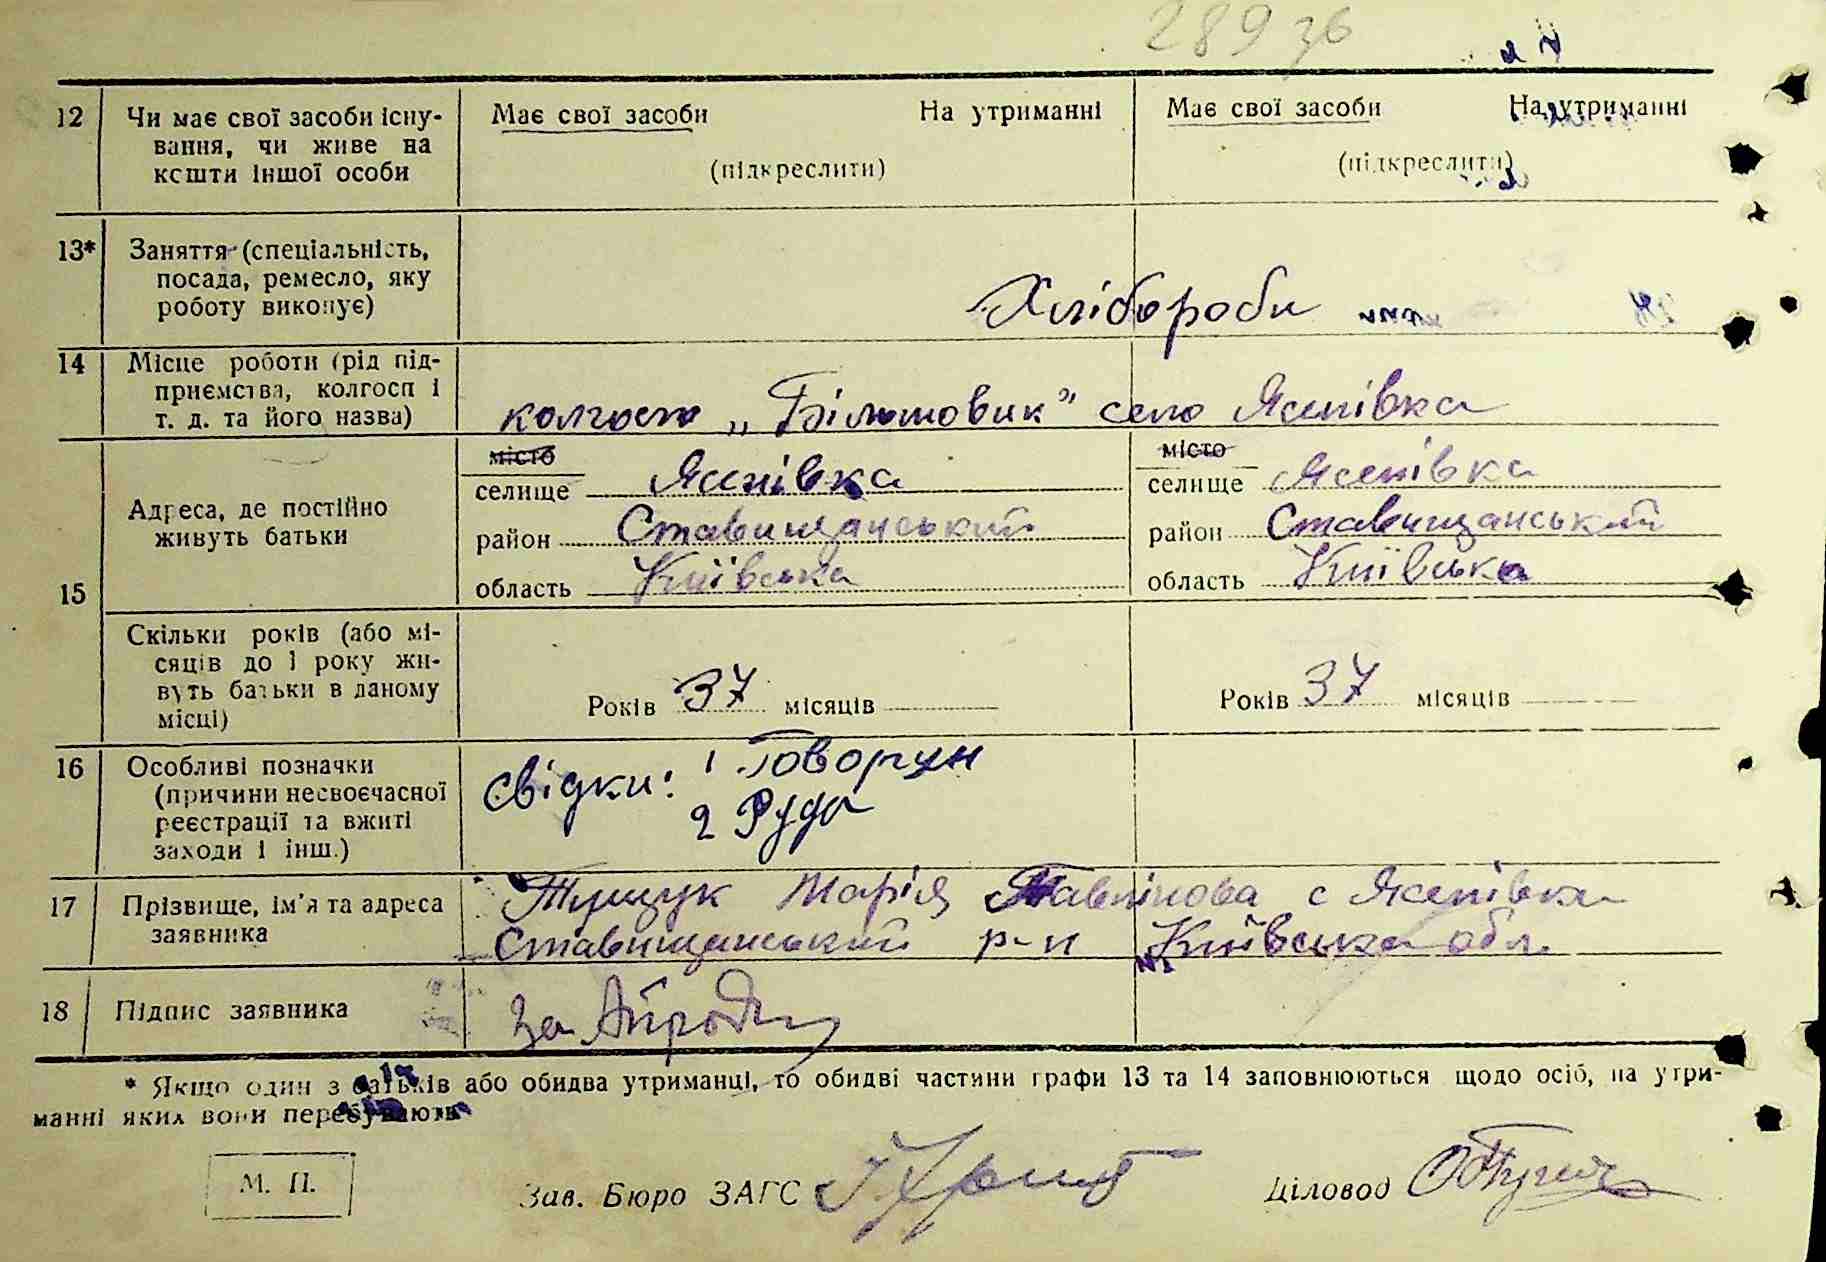 289 зв
12 Чи має свої засоби існу-
вання, чи живе на
кошти іншої особи
Має свої засоби На утриманні
(підкреслити)
Має свої засоби На утриманні
(підкреслити)
13* Заняття (спеціальність,
посада, ремесло, яку
роботу виконує)
Хлібороби
14 Місце роботи (рід під-
приємства, колгосп і
т. д. та його назва)
колгосп „Більшовик" село Ясенівка
15
Адреса, де постійно
живуть батьки
місто
селище Ясенівка
район Ставищанський
область Київська
місто
селище Ясенівка
район Ставищанський
область Київська
Скільки років (або мі-
сяців до 1 року жи-
вуть батьки в даному
місці)
Років 37 місяців
Років 37 місяців
16 Особливі позначки
(причини несвоєчасної
реєстрації та вжиті
заходи і інш.)
Свідки: 1 Говорун
2 Руда
17 Прізвище, ім'я та адреса
заявника
Марія с Ясенівка
Ставищанський р-н Київська обл
18 Підпис заявника
за
* Якщо один з батьків або обидва утриманці, то обидві частини графи 13 та 14 заповнюються щодо осіб, на утри-
манні яких вони перебувають
М. П.
Зав. Бюро ЗАГС
Діловод